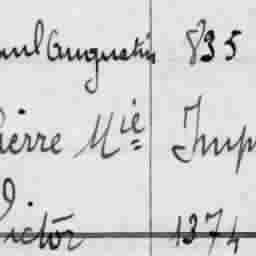 aul Augustin 835
ierre Mie Imp
Victor 1374